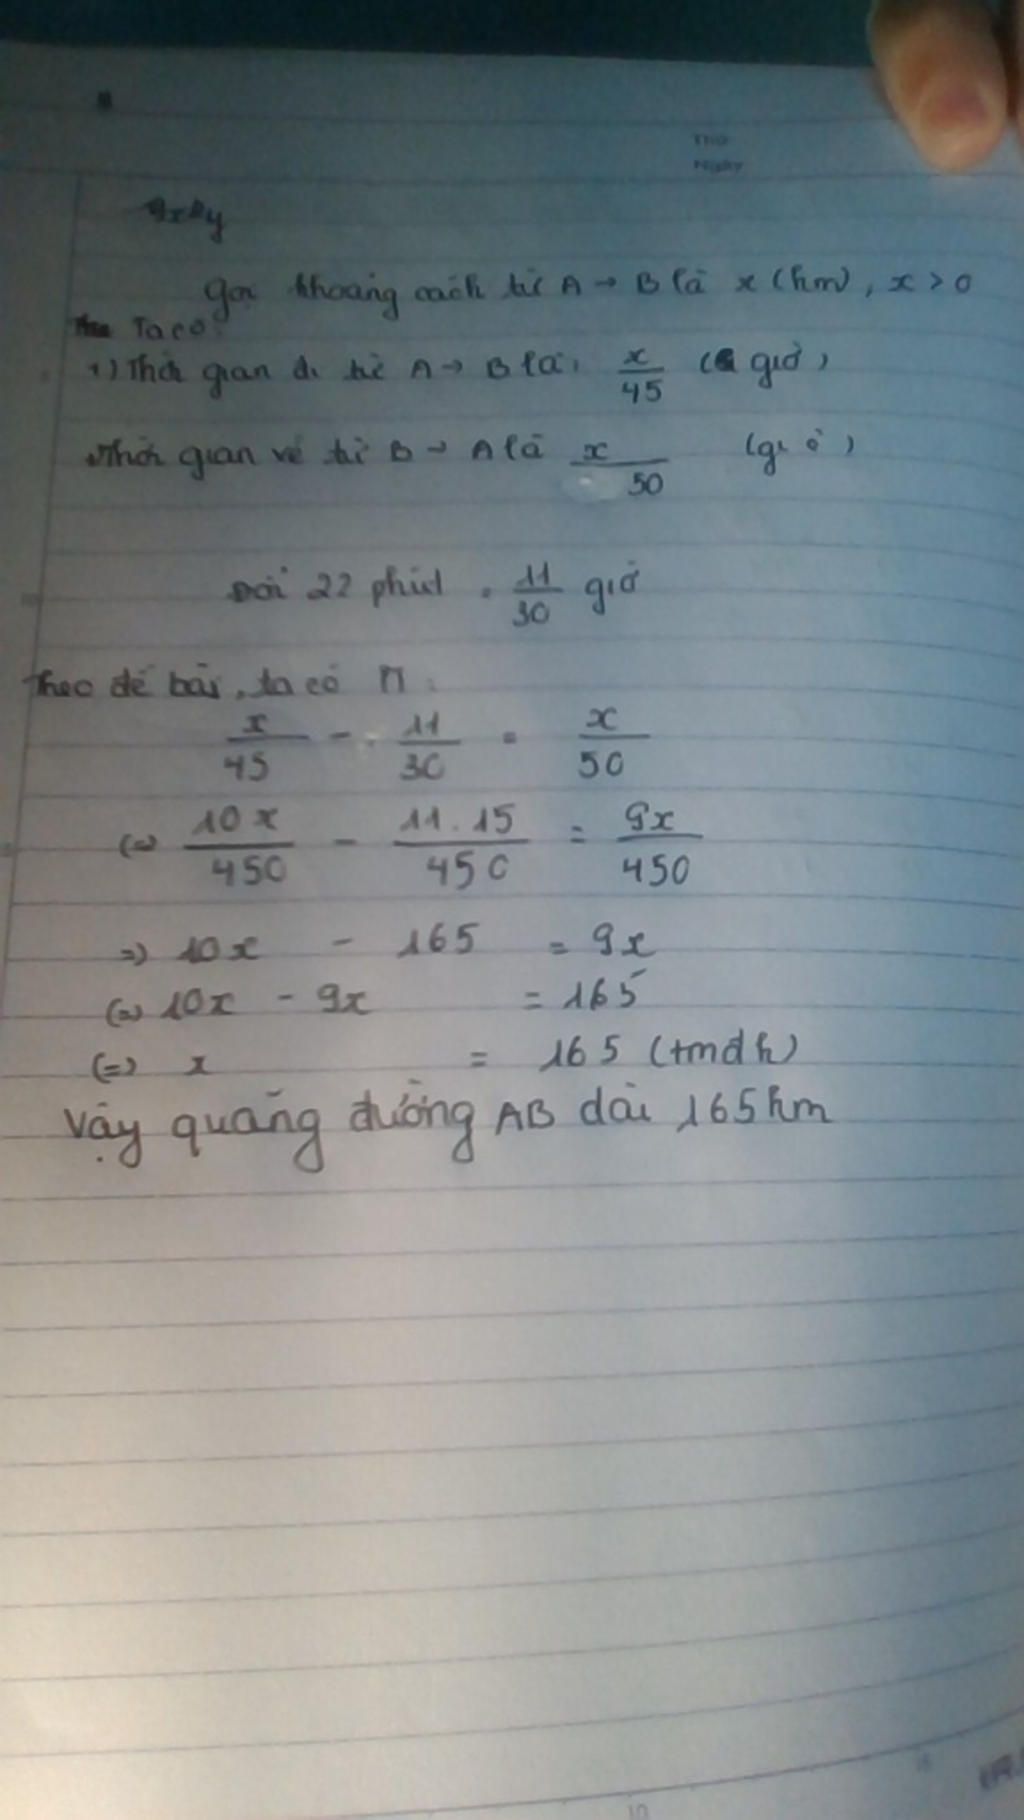 Thứ
Ngày
Gọi khoảng cách từ A → B là x (km), x > 0
Ta có:
1) Thời gian đi từ A → B là: x/45 (giờ)
Thời gian về từ B → A là x/50 (giờ)
Đổi 22 phút = 11/30 giờ
Theo đề bài, ta có PT:
x/45 - 11/30 = x/50
(=) 10x/450 - 11.15/450 = 9x/450
=) 10x - 165 = 9x
(=) 10x - 9x = 165
(=) x = 165 (tmdk)
Vậy quãng đường AB dài 165km
10